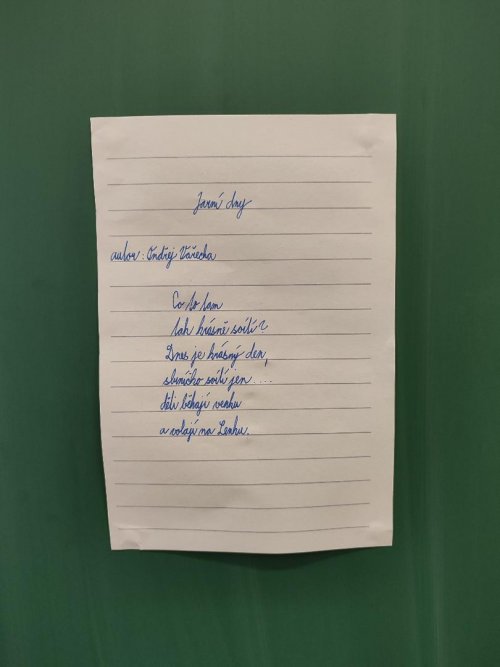 Jarní dny
autor: Ondřej Vařecha
Co to tam
tak krásně svítí?
Dnes je krásný den,
sluníčko svítí jen....
děti běhají venku
a volají na Lenku.